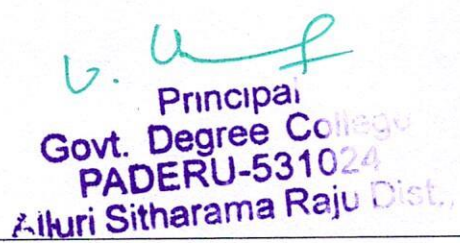 Principal
Govt. Degree College
PADERU-531024
Alluri Sitharama Raju Dist.,